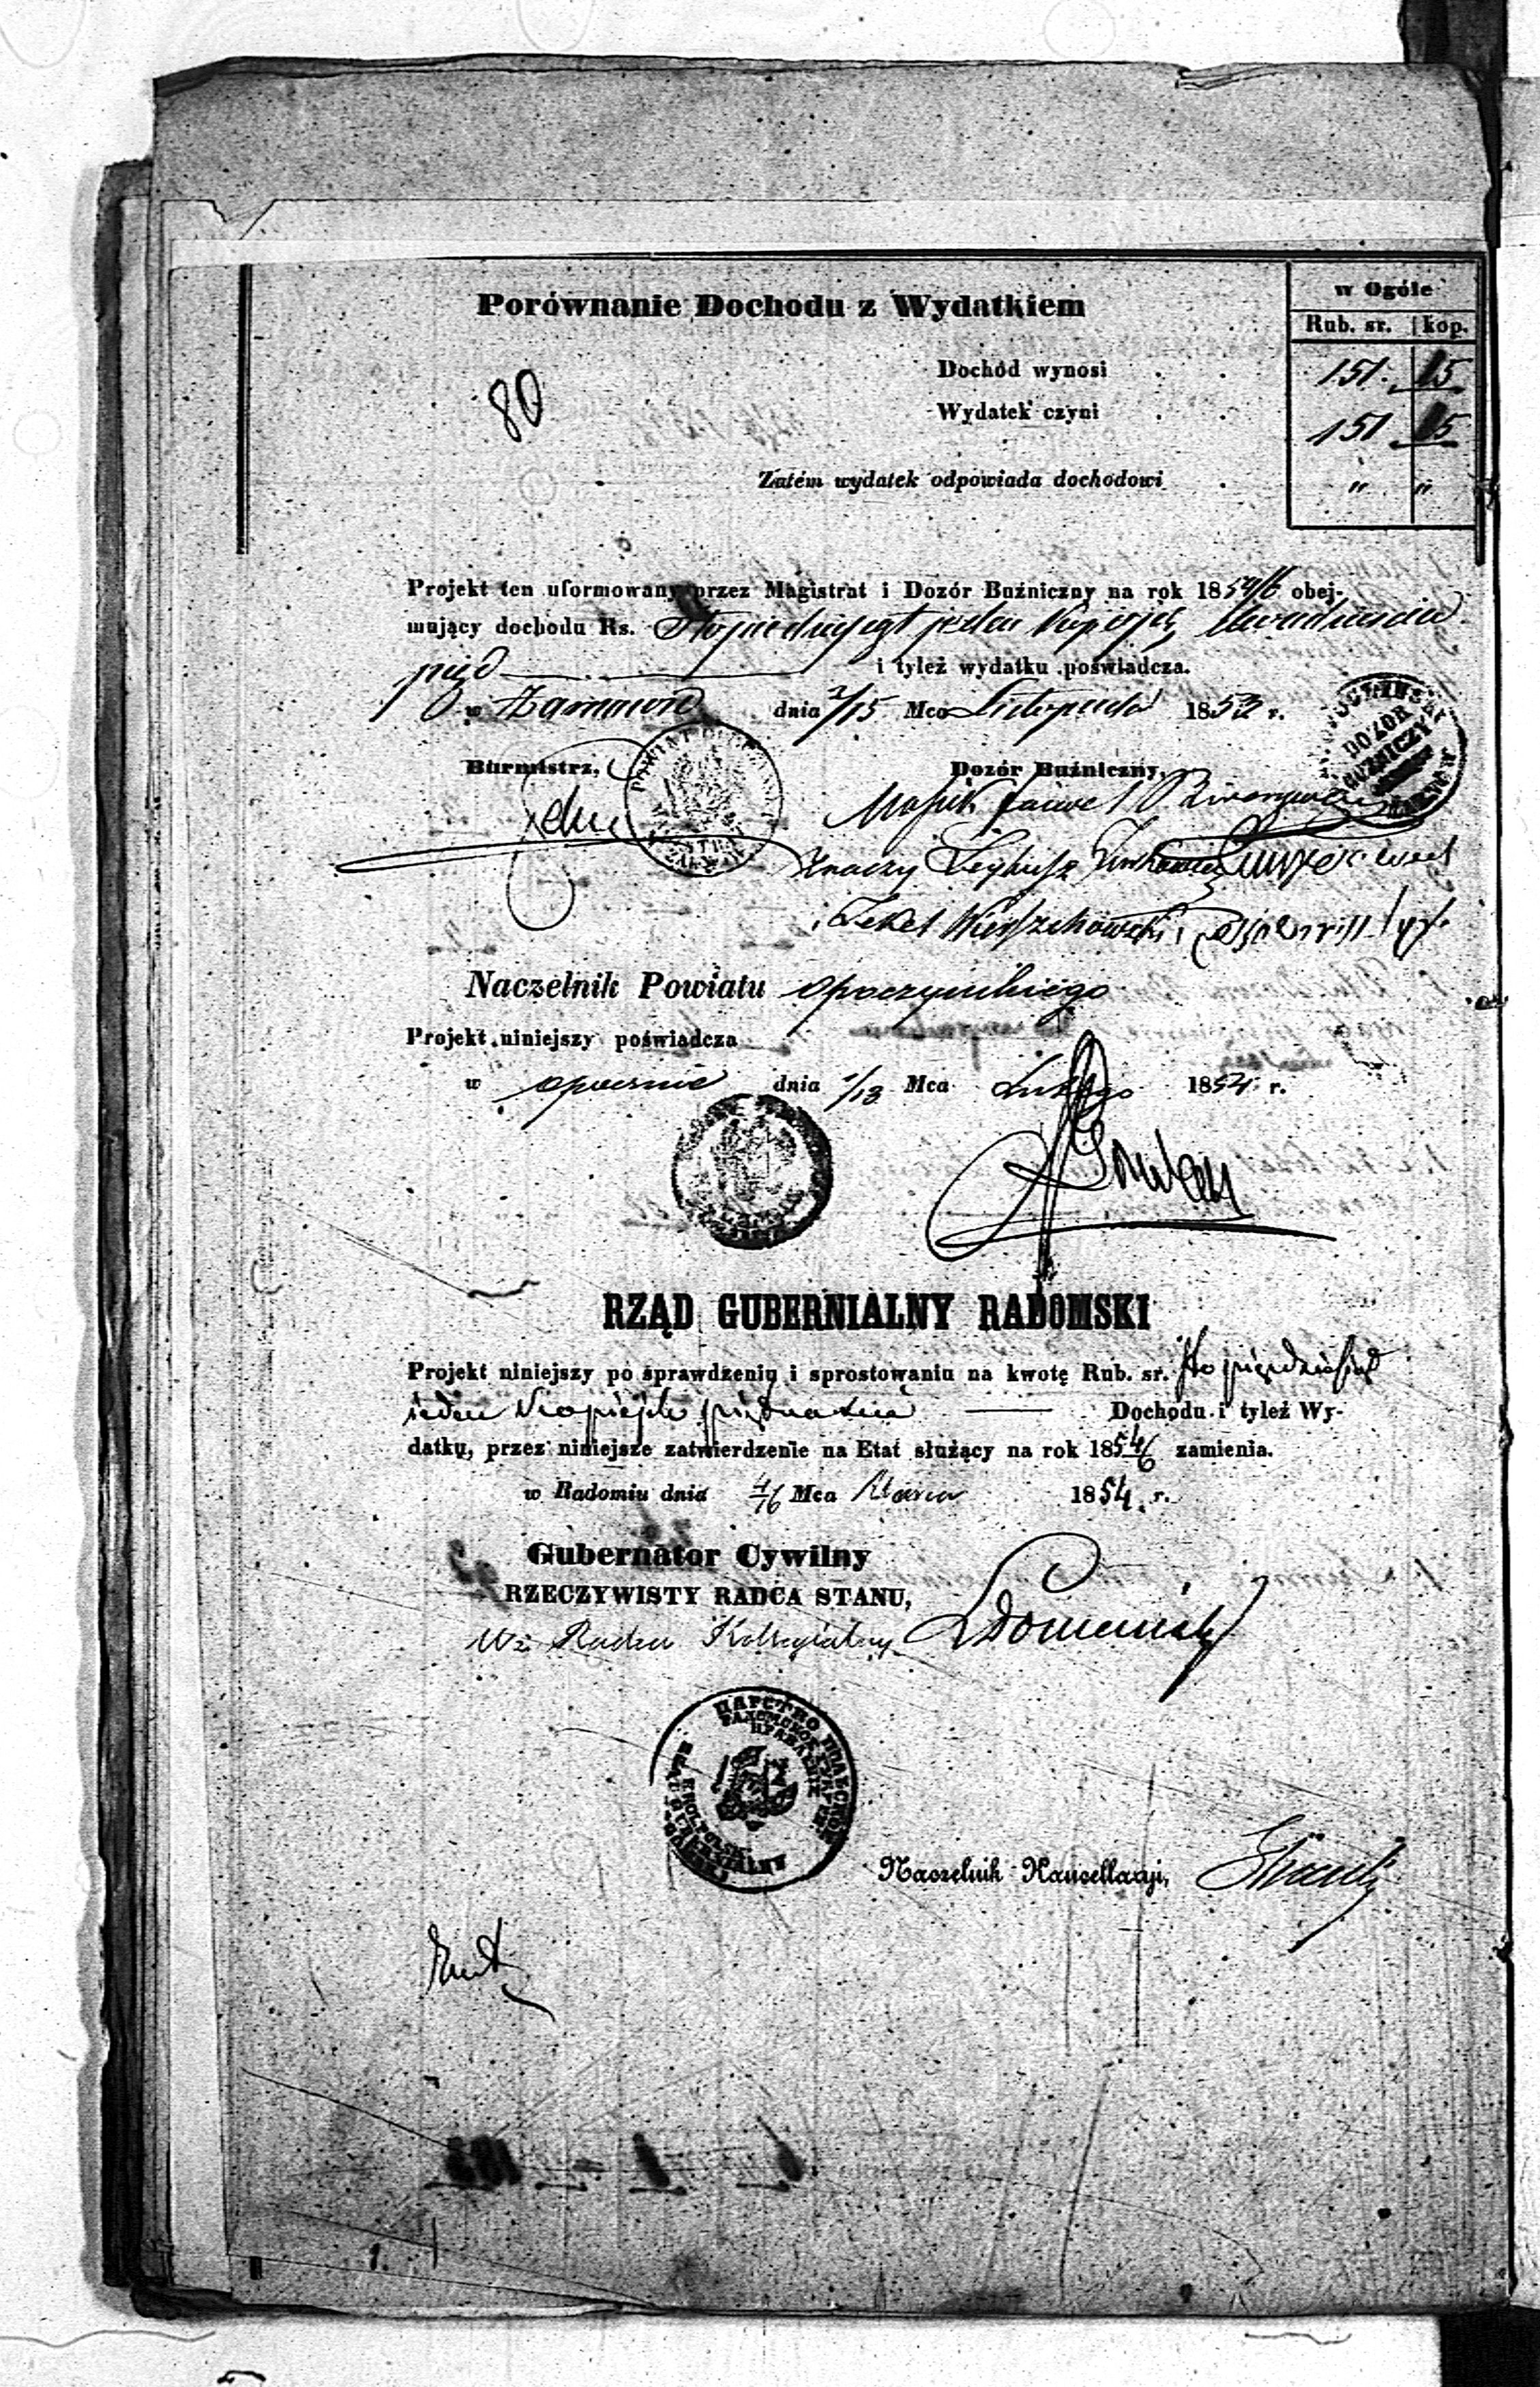 Porównanie Dochodu z Wydatkiem
w Ogóle
Rub. sr. kop.
Dochód wynosi 151 15
80
Wydatek czyni 151 15
Zatém wydatek odpowiada dochodowi " "
Projekt ten uformowany przez Magistrat i Dozór Buźniczny na rok 1854/6 obej-
mujący dochodu Rs. Stopiędziesiąt jeden Kopiejek dwadzieścia
pięć i tyleż wydatku poświadcza.
w Żarnowie dnia 3/15 Mca Listopada 1853 r.
Burmistrz, Dozór Buźniczny,
DOZOR
BUZNICZY
Znaczy Leybusz
i Lekel Wierszchowski
Naczelnik Powiatu Opoczyńskiego
Projekt niniejszy poświadcza
w Opocznie dnia 1/13 Mca Lutego 1854 r.
RZĄD GUBERNIALNY RADOMSKI
Projekt niniejszy po sprawdzeniu i sprostowaniu na kwotę Rub. sr. sto pięćdziesiąt
jeden Kopiejek piętnaście Dochodu i tyleż Wy-
datku, przez niniejsze zatwierdzenie na Etat służący na rok 1854/6 zamienia.
w Radomiu dnia 4/16 Mca Marca 1854 r.
Gubernator Cywilny
RZECZYWISTY RADCA STANU,
Wz Radca Kollegialny
Naczelnik Kancellaryi,
1.